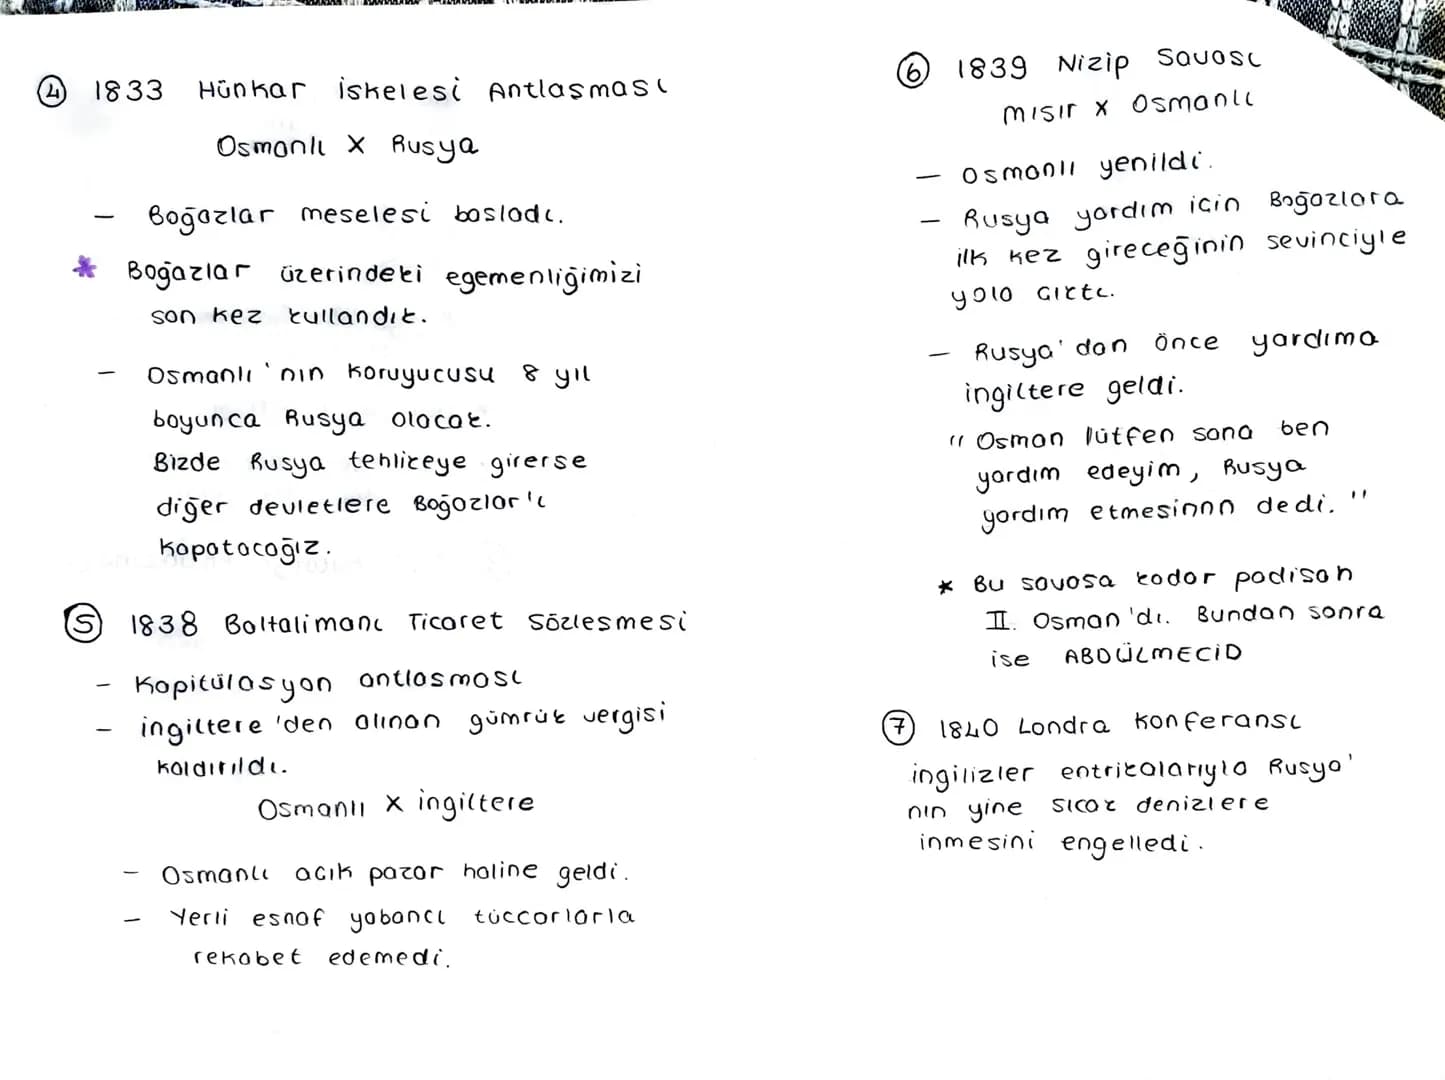 ④ 1833 Hünkar İskelesi Antlaşması
Osmanlı X Rusya
– Boğazlar meselesi başladı.
* Boğazlar üzerindeki egemenliğimizi
son kez kullandık.
– Osmanlı'nın koruyucusu 8 yıl
boyunca Rusya olacak.
Bizde Rusya tehlikeye girerse
diğer devletlere Boğazlar'ı
kapatacağız.
⑤ 1838 Baltalimanı Ticaret Sözleşmesi
– Kapitülasyon antlaşması
– ingiltere'den alınan gümrük vergisi
kaldırıldı.
Osmanlı X ingiltere
– Osmanlı açık pazar haline geldi.
– Yerli esnaf yabancı tüccarlarla
rekabet edemedi.
⑥ 1839 Nizip Savaşı
mısır x Osmanlı
– Osmanlı yenildi.
– Rusya yardım için Boğazlara
ilk kez gireceğinin sevinciyle
yola çıktı.
– Rusya'dan önce yardıma
ingiltere geldi.
" Osman lütfen sana ben
yardım edeyim, Rusya
yardım etmesinnn dedi. "
* Bu savaşa kadar padişah
II. Osman'dı. Bundan sonra
ise ABDÜLMECİD
⑦ 1840 Londra Konferansı
ingilizler entrikalarıyla Rusya'
nın yine sıcak denizlere
inmesini engelledi.